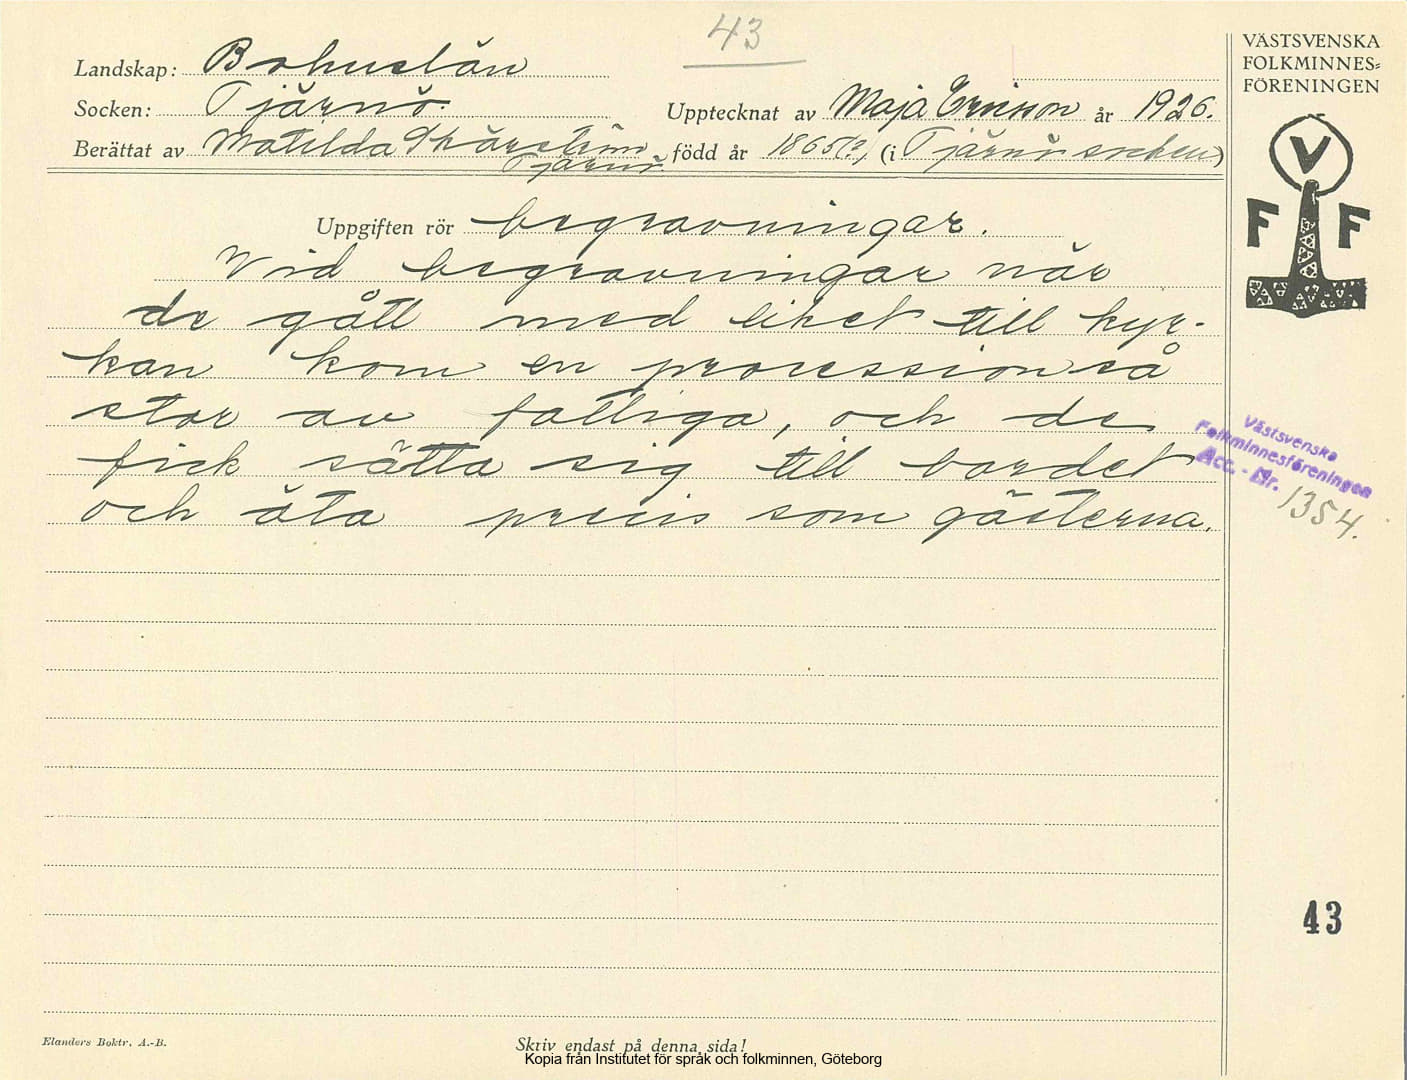 43
Landskap: Bohuslän
Socken: Tjärnö.
Upptecknat av Maja Ericson år 1926.
Berättat av Matilda Skärström
Tjärnö.
född år 1865(?) (i Tjärnö socken)
Uppgiften rör begravningar.
Vid begravningar när
de gått med liket till kyr-
kan kom en procession så
stor av fattiga, och de
fick sätta sig till bordet
och äta precis som gästerna.
VÄSTSVENSKA
FOLKMINNES=
FÖRENINGEN
V
F F
Västsvenska
Folkminnesföreningen
Acc. - Nr. 1354.
43
Elanders Boktr. A.-B.
Skriv endast på denna sida!
Kopia från Institutet för språk och folkminnen, Göteborg